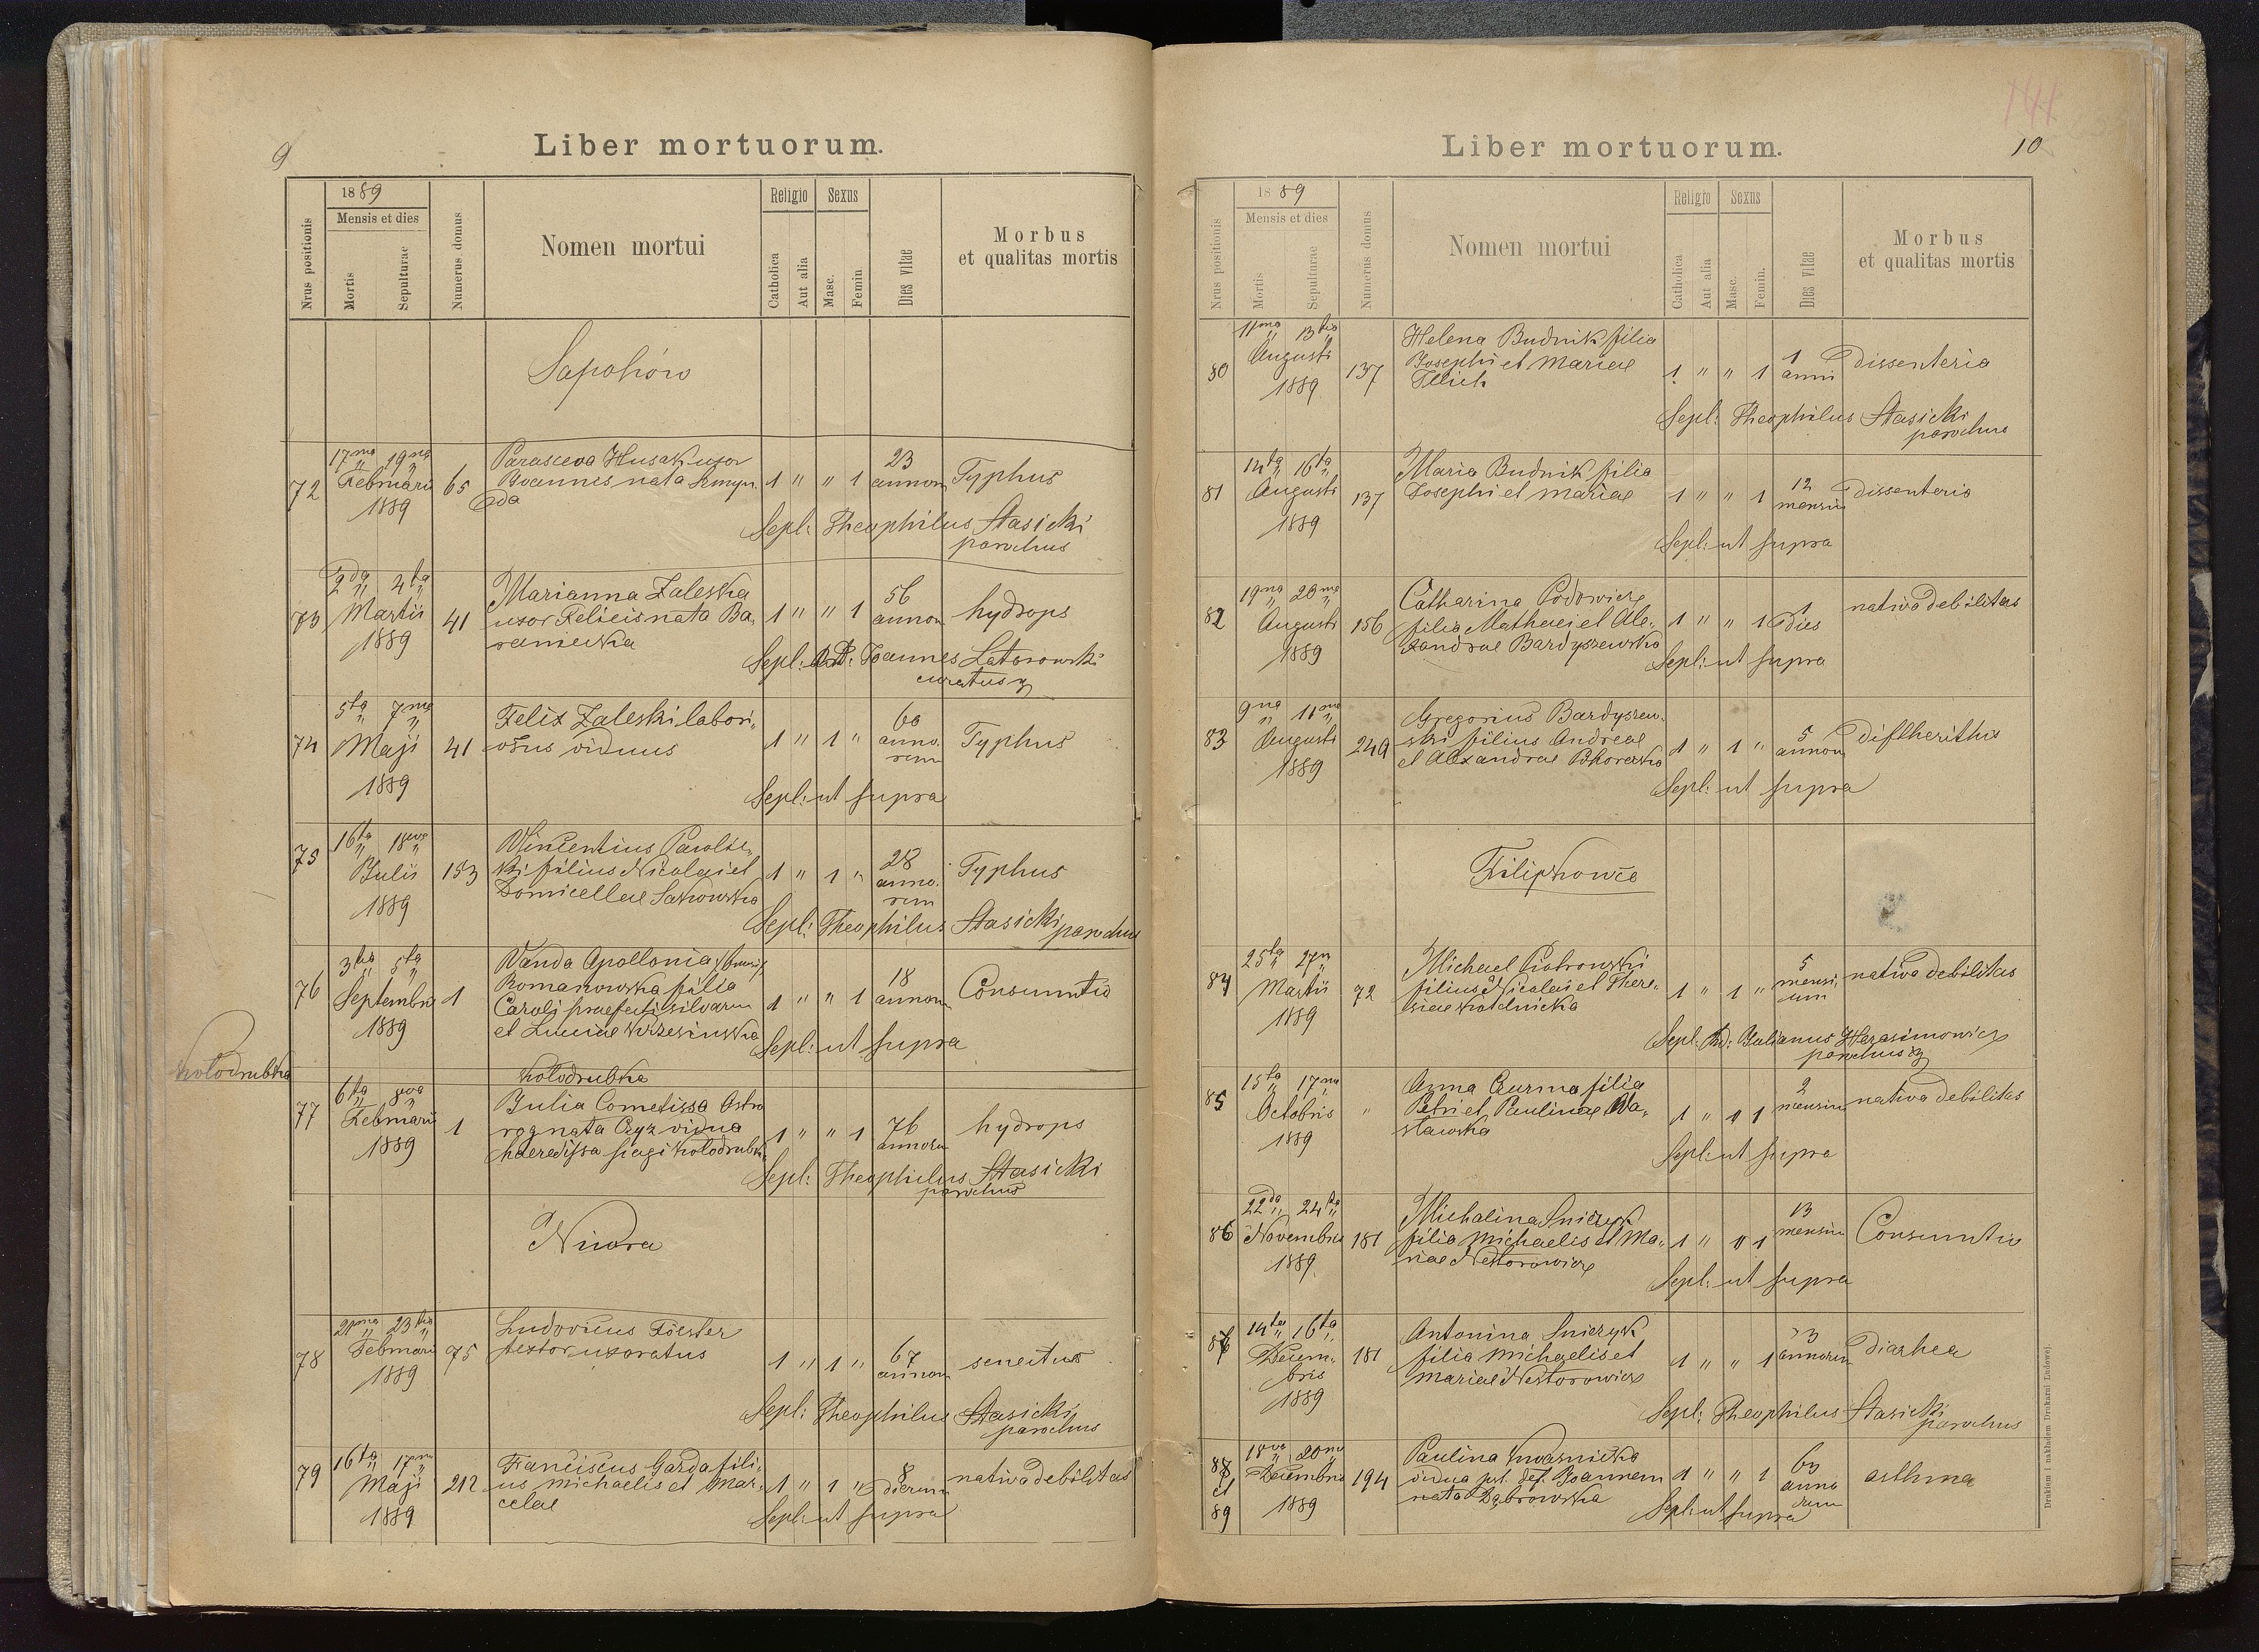 9
Liber mortuorum.
1889
Mensis et dies
Nrus positionis
Mortis
Sepulturae
Numerus domus
Nomen mortui
Religio
Catholica
Aut alia
Sexus
Masc.
Femin.
Dies vitae
Morbus
et qualitas mortis
Sapohów
72
17ma 19na
Februarii
1889
65
Parasceva Husak uxor
Joannes nata
1 " " 1
23
annorum
Typhus
Sepl: Theophilus Stasicki
parochus
73
2da 4ta
Martii
1889
41
Marianna Zaleska
uxor Felicis nata Ba,
raniecka
1 " " 1
56
annorum
hydrops
Sepl: Joannes Latorowski
curatus
74
5ta 7ma
Maji
1889
41
Felix Zaleski labori,
osus viduus
1 " 1 "
60
anno.
rum
Typhus
Sepl: ut supra
75
16ta 18va
Julii
1889
153
Vincentius
ki filius Nicolai et
Domicellae Satkowska
1 " 1 "
28
anno.
rum
Typhus
Sepl: Theophilus Stasicki parochus
76
3tia 5ta
Septembris
1889
1
Vanda Apollonia
Romanowska filia
Caroli praefecti silvarum
et Luciae Krzesinska
1 " " 1
18
annorum
Consumtio
Sepl: ut supra
Kolodrubka
Kolodrubka
77
6ta 8va
Februarii
1889
1
Julia Cometissa Ostro
rog nata Czyz vidua
haeredissa pagi Kolodrubka
1 " " 1
76
annorum
hydrops
Sepl: Theophilus Stasicki
parochus
Niwra
78
21ma 23tia
Februarii
1889
75
Ludovicus Foester
textor uxoratus
1 " 1 "
67
annorum
senectus
Sepl: Theophilus Stasicki
parochus
79
16ta 17ma
Maji
1889
212
Franciscus Garda fili,
us Michaelis et Mar,
celae
1 " 1 "
8
dierum
nativa debilitas
Sepl: ut supra
141
10
Liber mortuorum.
1889
Mensis et dies
Nrus positionis
Mortis
Sepulturae
Numerus domus
Nomen mortui
Religio
Catholica
Aut alia
Sexus
Masc.
Femin.
Dies vitae
Morbus
et qualitas mortis
80
11ma 13tia
Augusti
1889
137
Helena Budnik filia
Josephi et Mariae
1 " " 1
1
anni
dissenteria
Sepl: Theophilus Stasicki
parochus
81
14ta 16ta
Augusti
1889
137
Maria Budnik filia
Josephi et Mariae
1 " " 1
12
mensium
dissenteria
Sepl: ut supra
82
19na 20ma
Augusti
1889
156
Catharina Podowicz
filia Mathaei et Ale,
xandrae Bardyszewska
1 " " 1
1
dies
nativa debilitas
Sepl: ut supra
83
9na 11ma
Augusti
1889
249
Gregorius Bardyszew,
ski filius Andreae
et Alexandrae
1 " 1 "
5
annorum
diftherithis
Sepl: ut supra
Filipkowce
84
25ta 27
Martii
1889
72
Michael Piotrowski
filius Nicolai et There,
siae Kotelnicka
1 " 1 "
5
mensi,
um
nativa debilitas
Sepl: Julianus Herasimowicz
parochus
85
15ta 17ma
Octobris
1889
"
Anna Czurma filia
Petri et Paulinae Wa,
slawska
1 " " 1
2
mensium
nativa debilitas
Sepl: ut supra
86
22da 24ta
Novembris
1889
181
Michalina Snierzyk
filia Michaelis et Ma,
riae Nestorowicz
1 " " 1
13
mensium
Consumtio
Sepl: ut supra
87
14ta 16ta
Decem,
bris
1889
181
Antonina Snierzyk
filia Michaelis et
Mariae Nestorowicz
1 " " 1
3
annorum
diarhea
Sepl: Theophilus Stasicki
parochus
88
et
89
18va 20ma
Decembris
1889
194
Paulina Kwasnicka
vidua post def. Joannem
nata Dąbrowska
1 " " 1
anno
rum
asthma
Sepl: ut supra
Drukiem i nakładem Drukarni Ludowej.